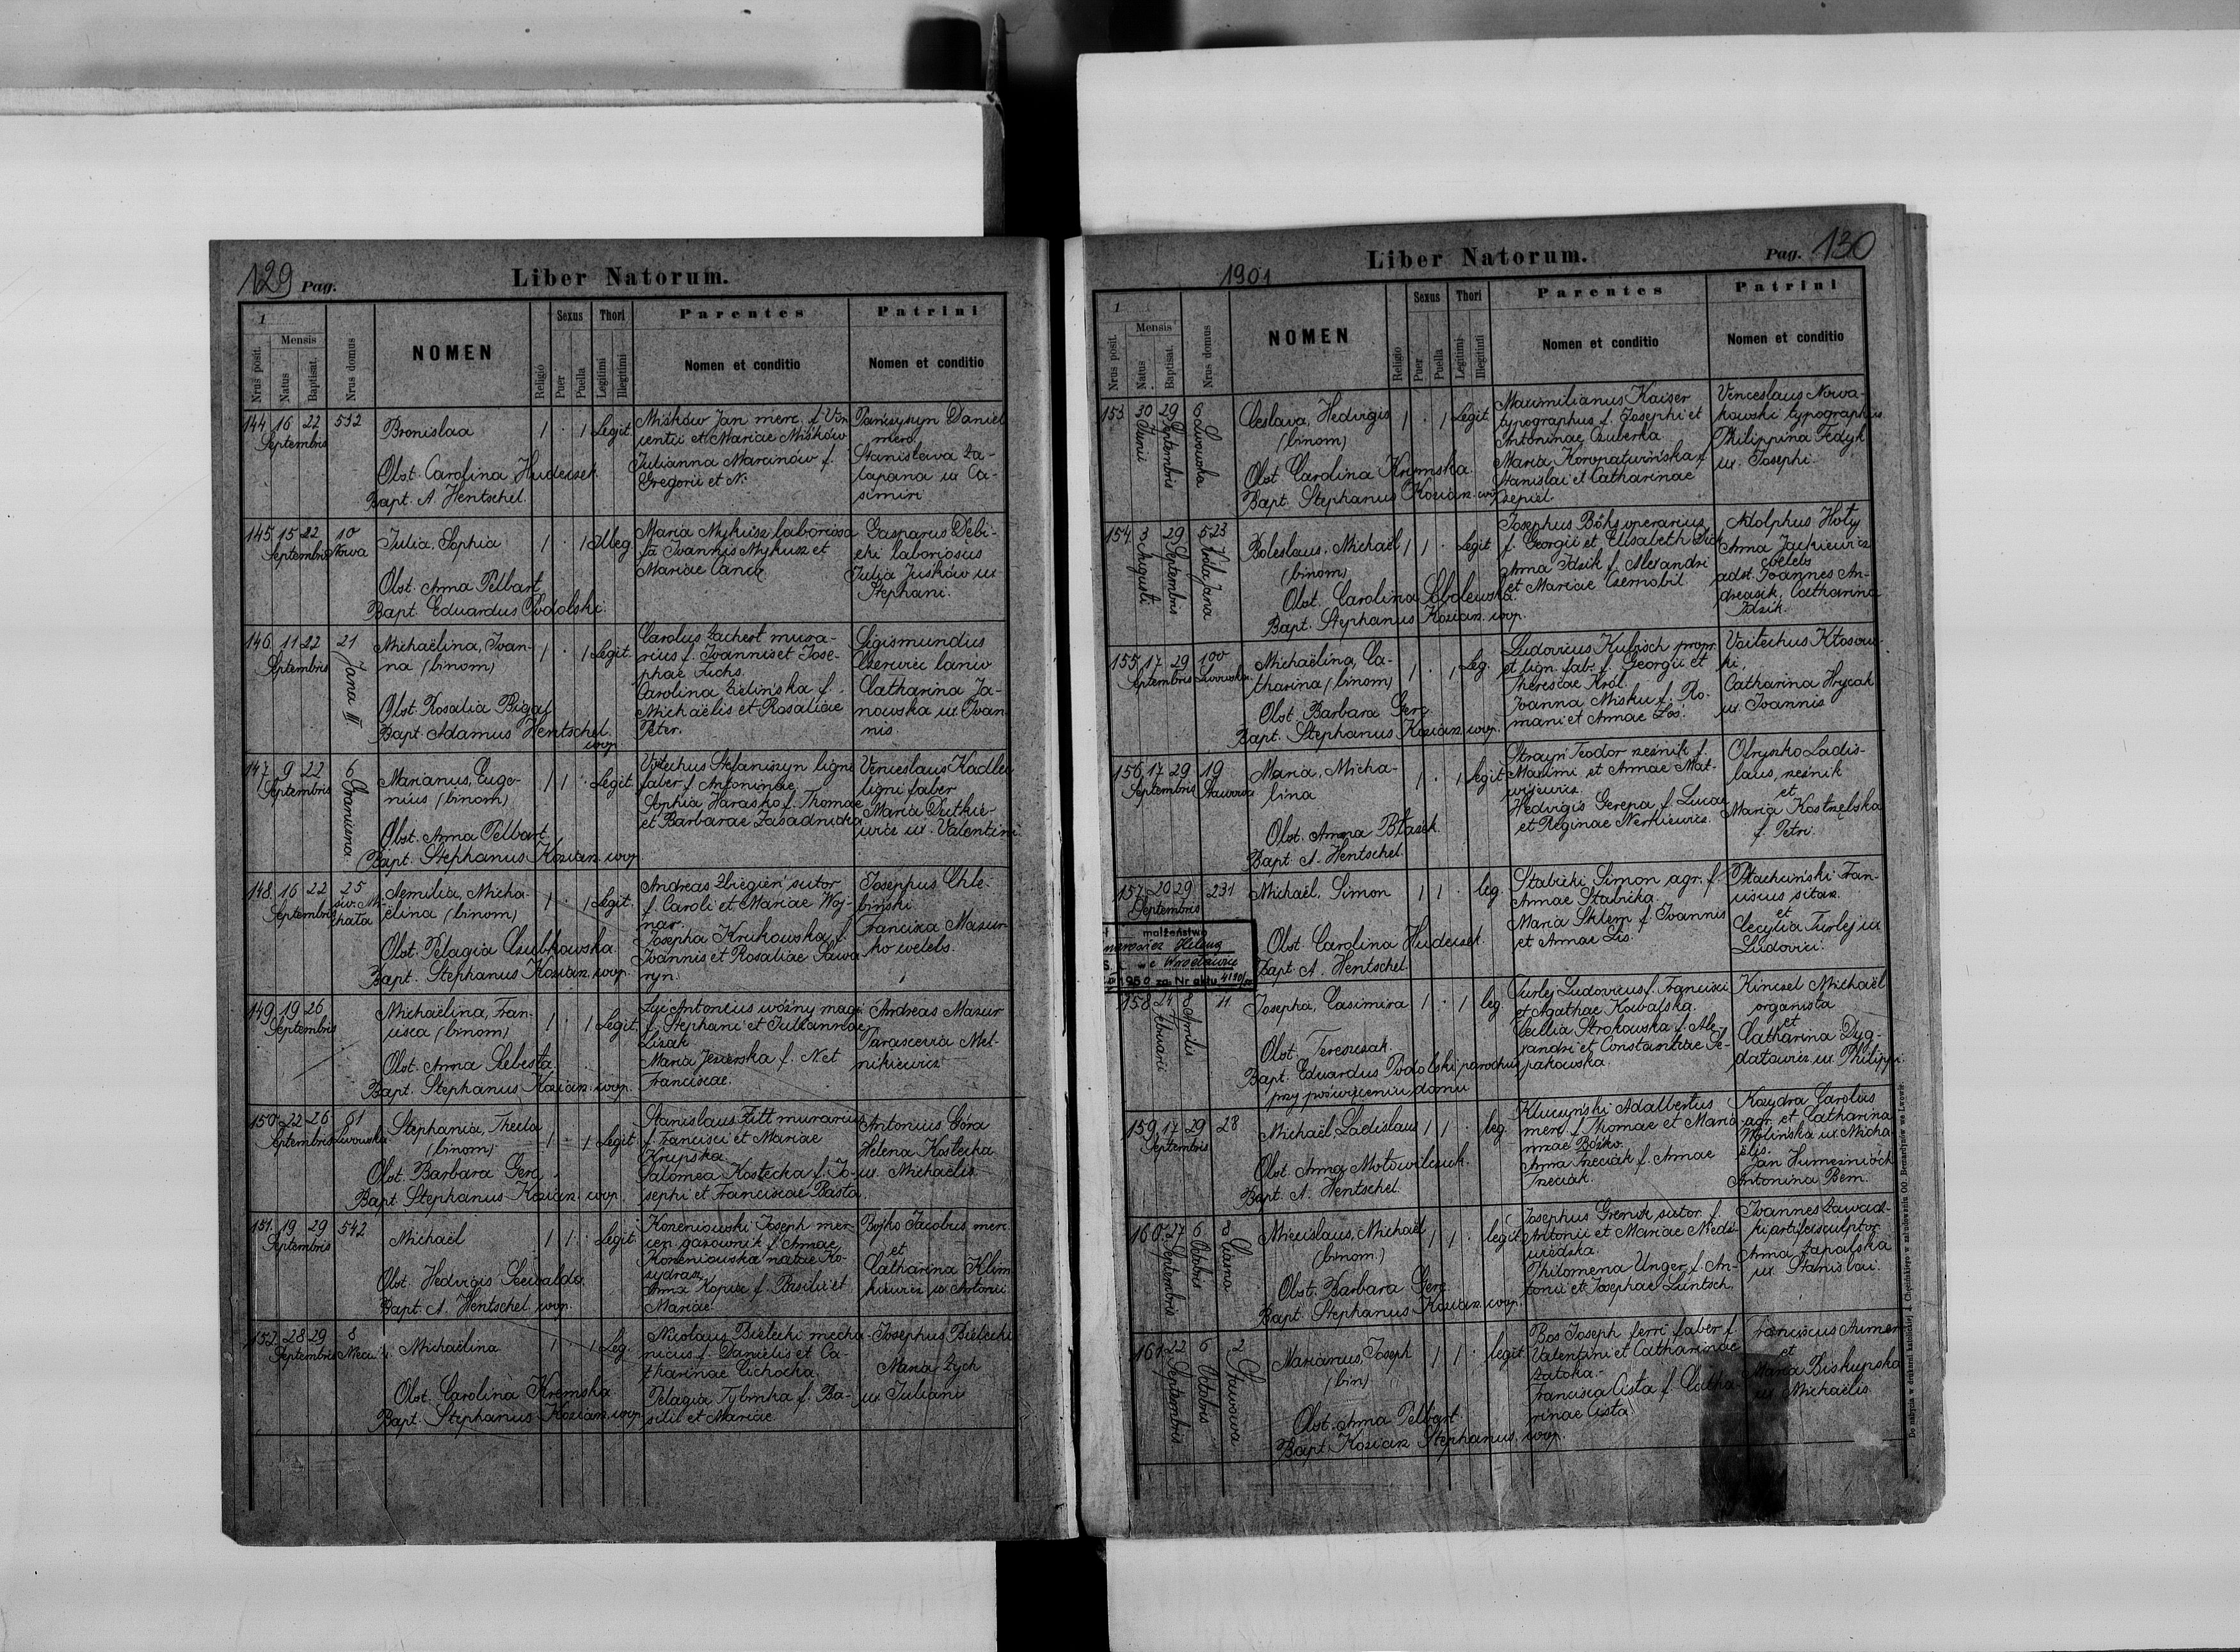 129 Pag.
Liber Natorum.
1
Mensis
Nrus posit.
Natus
Baptisat.
Nrus domus
NOMEN
Religio
Sexus
Puer
Puella
Thori
Legitimi
Illegitimi
Parentes
Nomen et conditio
Patrini
Nomen et conditio
144 16 22 532
Septembris
Bronislaa
1 · 1 Legit.
Obst. Carolina Hudeisek
Bapt. A Hentschel.
Miśków Jan merc. f. Vin
centii et Mariae Miśków
Julianna Marcinów f.
Gregorii et N.
Panczyszyn Daniel
merc.
Stanislava Za-
łapana ux Ca-
simiri
145 15 22 10
Septembris Nowa
Julia, Sophia
1 · 1 Illeg
Obst. Anna Pelbart
Bapt. Eduardus Podolski.
Maria Mykusz laboriosa
fa Joannis Mykusz et
Mariae Cancz
Gasparus Debi-
cki laboriosus
Julia Juśków ux
Stephani.
146 11 22 21
Septembris Jana III
Michaëlina, Joan-
na (binom)
1 · 1 Legit.
Obst. Rosalia Bigaj
Bapt. Adamus Hentschel
coop
Carolus Zachert mura-
rius f. Joannis et Jose-
phae Richs.
Carolina Zielińska f.
Michaëlis et Rosaliae
Peter.
Sigismundus
Czerwic lanio
Catharina Ja-
nowska ux Joan
nis.
147 9 22 6
Septembris
Marianus, Euge-
nius (binom)
1 1 · Legit.
Obst. Anna Pelbart
Bapt. Stephanus Koziarz. coop.
Vojtechus Stefaniszyn ligni
faber f. Antoninae
Sophia Harasko f. Thomae
et Barbarae Zasadnicka
Venceslaus Kadlec
ligni faber
Maria Dutkie-
wicz ux. Valentini.
148 16 22 25
Septembris św. Mi
chała
Aemilia, Micha-
ëlina (binom)
1 · 1 Legit.
Obst. Pelagia Czubkowska
Bapt. Stephanus Koziarz. coop.
Andreas Zbiegień sutor
f. Caroli et Mariae Woj-
nar.
Josepha Krukowska f.
Joannis et Rosaliae Pawa
ryn.
Josephus Chle-
biński.
Francisca Mazur-
ko coelebs.
149 19 26
Septembris
Michaëlina, Fran-
cisca (binom)
1 · 1 Legit.
Obst. Anna Sebesta
Bapt. Stephanus Koziarz. coop.
Antonius wóźny magi
f. Stephani et Juliannae
Lizak
Maria Jezierska f. N et
Franciscae.
Andreas Mazur
Parascevia Mel-
nikiewicz
150 22 26 61
Septembris Lwowska
Stephania, Thecla
(binom)
1 · 1 Legit.
Obst. Barbara Gerc
Bapt Stephanus Koziarz. coop.
Stanislaus Zitt murarius
f. Francisci et Mariae
Krupska
Salomea Kostecka f. Jo-
sephi et Franciscae Basta.
Antonius Góra
Helena Kostecka
ux. Michaëlis.
151 19 29 542
Septembris
Michaël
1 1 · Legit.
Obst. Hedvigis Seewaldo
Bapt. A. Hentschel coop.
Korzeniowski Joseph mer-
cen gazownik f. Annae
Korzeniowska natae Ko-
zydraz
Anna Kopia f. Basilii et
Mariae.
Bojko Jacobus merc.
et
Catharina Klim
kiewicz ux Antonii
152 28 29 8
Septembris
Michaëlina
1 · 1 Leg.
Obst. Carolina Kremska
Bapt. Stephanus Koziarz. coop
Nicolaus Bielecki mecha-
nicus f. Danielis et Ca-
tharinae Cichocka
Pelagia Tybinka f. Ba-
silii et Mariae
Josephus Bielecki
Maria Zych
ux Juliani
1901
Liber Natorum.
Pag. 130
1
Mensis
Nrus posit.
Natus
Baptisat.
Nrus domus
NOMEN
Religio
Sexus
Puer
Puella
Thori
Legitimi
Illegitimi
Parentes
Nomen et conditio
Patrini
Nomen et conditio
153 30 29 6
Junii Septembris Lwowska
Ceslava, Hedvigis
(binom)
1 · 1 Legit.
Obst Carolina Kremska.
Bapt. Stephanus Koziarz. coop.
Maximilianus Kaiser
typographus f. Josephi et
Antoninae Czuberka
Maria Koropatwińska f.
Stanislai et Catharinae
Czepiel
Venceslaus Nowa-
kowski typographus
Philippina Fedyk
ux. Josephi.
154 3 29 523
Augusti Septembris Jana
Boleslaus, Michaël
(binom)
1 1 · Legit
Obst. Carolina Sobolewska.
Bapt. Stephanus Koziarz. coop.
Josephus Böhs operarius
f. Georgii et Elisabeth
Anna Idzik f. Alexandri
et Mariae Czernobil
Adolphus Hoty
Anna Jackiewicz
coelebs
adst. Joannes An-
dreasik, Catharina
Idzik.
155 17 29 100
Septembris Lwowska
Michaëlina, Ca-
tharina (binom)
1 · 1 Leg.
Obst. Barbara Gerc
Bapt. Stephanus Koziarz. coop.
Ludovicus Kubisch propr.
et lign. fab. f. Georgii et
Theresae Król.
Joanna Misku f. Ro-
mani et Annae Łoś.
Voitechus Kłosow-
ki,
Catharina Hrycak
ux. Joannis
156 17 29 19
Septembris
Maria, Micha-
lina
1 · 1 Legit
Obst. Anna Błażek.
Bapt. A. Hentschel.
Stroyn Teodor rzeźnik f.
Maximi et Annae Mat-
wijewicz.
Hedvigis Gerepa f. Lucae
et Reginae Nerkiewicz.
Ofryszko Ladis-
laus, rzeźnik
et
Maria Kostrzelska
f. Petri.
157 20 29 231
Septembris
Michaël, Simon
1 1 · leg.
Obst. Carolina Hudeisek.
Bapt A. Hentschel.
Stabicki Simon agr. f.
Annae Stabicka.
Maria Sklem f. Joannis
et Annae Lis.
Ptachiński Fran-
ciscus
et
Cecylia Turlej ux
Ludovici.
małżeństwo
Helena
we Wrocławiu
1950 za Nr aktu 4190
158 24 8 11.
Februarii Aprilis
Josepha, Casimira
1 · 1 leg.
Obst. Tereszczak.
Bapt. Eduardus Podolski parochus
przy poświęceniu domu
Turlej Ludovicus f. Francisci
et Agathae Kowalska.
Cecilia Strokowska f. Ale-
xandri et Constantiae Se-
pakowska.
Kincsel Michaël
organista
et
Catharina Dyg-
dałowicz ux. Philippi.
159 17 29 28
Septembris
Michaël Ladislaus
1 1 · leg.
Obst. Anna Motowilczuk.
Bapt. A. Hentschel.
Kluczyński Adalbertus
merc. f. Thomae et Maria
nnae Bośko.
Anna Trzeciak f. Annae
Trzeciak.
Kozydra Carolus
agr. et Catharina
Wolińska ux. Micha
ëlis.
Jan Humeszniock
Antonina Bem.
160 27 6 8
Septembris Octobris
Miecislaus, Michaël
(binom.)
1 1 · legit.
Obst. Barbara Gerc
Bapt. Stephanus Koziarz. coop.
Josephus Grenik sutor f.
Antonii et Mariae Niedź-
wiedzka.
Philomena Unger f. An-
tonii et Josephae Lüntsch.
Joannes Zawadz-
ki artifex sculptor
Anna Zapalska
ux. Stanislai.
161 22 6 2
Septembris Octobris
Marianus, Joseph
(bin)
1 1 · legit.
Obst. Anna Pelbart.
Bapt Koziarz Stephanus. coop.
Bas Joseph ferri faber f.
Valentini et Catharinae
Zatoka.-
Francisca Cista f. Catha-
rinae Cista
Franciscus Aumer
et
Maria Biskupska
ux Michaëlis.
Do nabycia w drukarni katolickiej J. Chęcińskiego w zabudowaniu OO. Bernardynów we Lwowie.